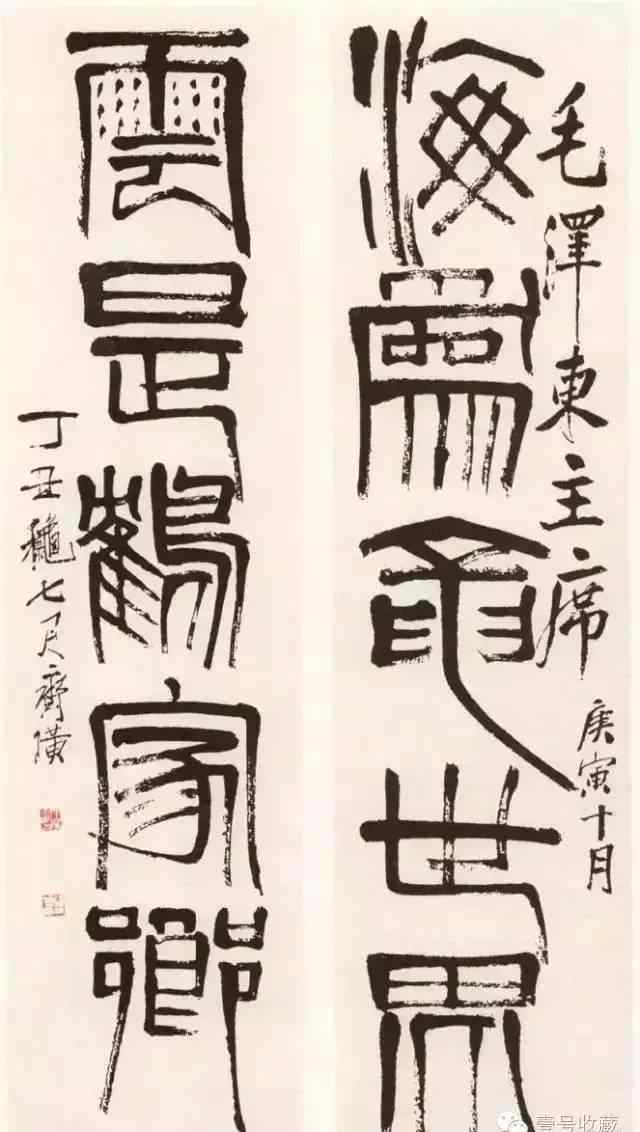 毛澤東主席
庚寅十月
海為龍世界
雲是鶴家鄉
丁丑穐七月齊璜
壹号收藏